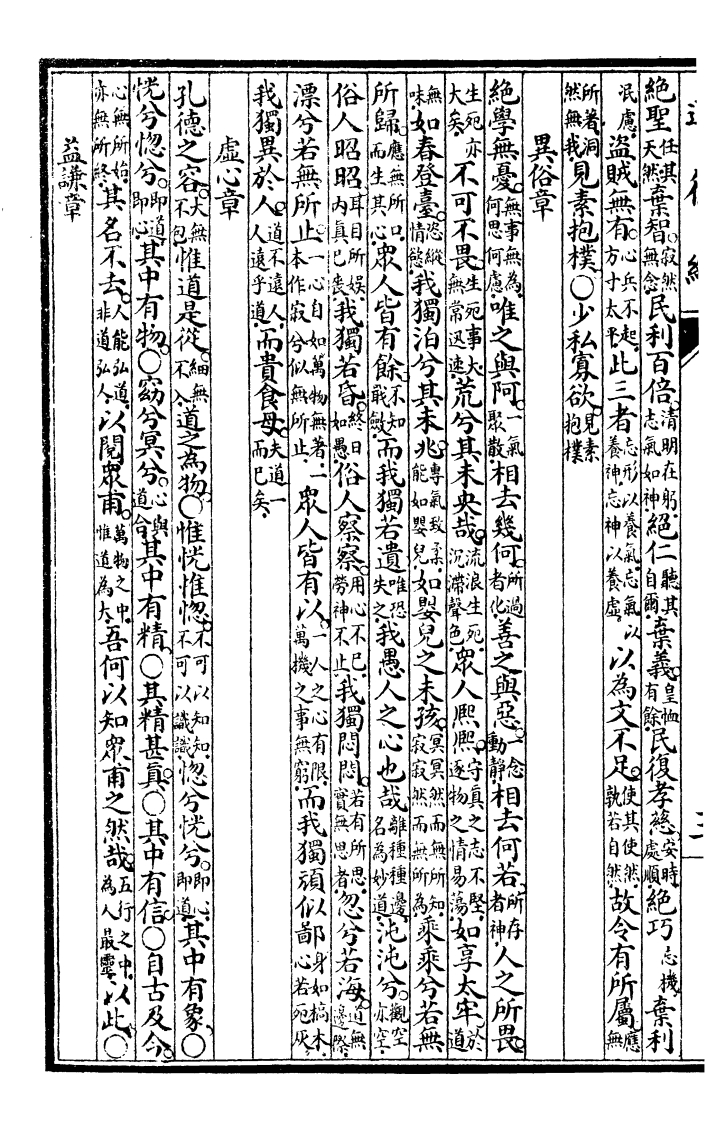 絕聖任其天然棄智寂然無念民利百倍清明在躬志氣如神絕仁聽其自爾棄義皇恤有餘民復孝慈安時處順絕巧忘機棄利
泯慮盜賊無有心兵不起方寸太平此三者忘形以養氣忘氣以養神忘神以養虛以為文不足使其使然孰若自然故令有所屬應無
所著洞然無我見素抱樸○少私寡欲見素抱樸
異俗章
絕學無憂無事無為何思何慮唯之與阿一氣聚散相去幾何所過者化善之與惡一念動靜相去何若所存者神人之所畏
生死亦大矣不可不畏生死事大無常迅速荒兮其未央哉流浪生死沉滯聲色眾人熙熙守真之志不堅逐物之情易蕩如享太牢於道
無味如春登臺恣縱情慾我獨泊兮其未兆專氣致柔能如嬰兒如嬰兒之未孩冥冥然而無所知寂寂然而無所為乘乘兮若無
所歸應無所口而生其心眾人皆有餘不知戢斂而我獨若遺唯恐失之我愚人之心也哉離種種邊名為妙道沌沌兮觀空亦空
俗人昭昭耳目所娛內真已喪我獨若昏終日如愚俗人察察用心不已勞神不止我獨悶悶若有所思實無思者忽兮若海道無邊際
漂兮若無所止一心自如萬物無著一本作寂兮似無所止眾人皆有以一人之心有限萬機之事無窮而我獨頑似鄙身如槁木心若死灰
我獨異於人道不遠人人遠乎道而貴食母夫道一而已矣
虛心章
孔德之容大無不包惟道是從細無不入道之為物○惟恍惟惚不可以知知不可以識識惚兮恍兮即心即道其中有象○
恍兮惚兮即道即心其中有物○窈兮冥兮心與道合其中有精○其精甚真○其中有信○自古及今
心無所始亦無所終其名不去人能弘道非道弘人以閱眾甫萬物之中惟道為大吾何以知眾甫之然哉五行之中為人最靈以此○
益謙章